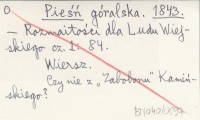 O Pieśń góralska. 1843.
— Rozmaitości dla Ludu Wiej-
skiego cz. I: 84.
Wiersz.
Czy nie z „Zabobonu" Kamiń-
skiego?